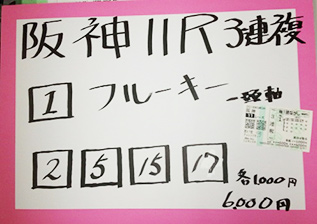 阪神11R 3連複
1 フルーキー 一頭軸
2 5 15 17 各1,000円
6,000円